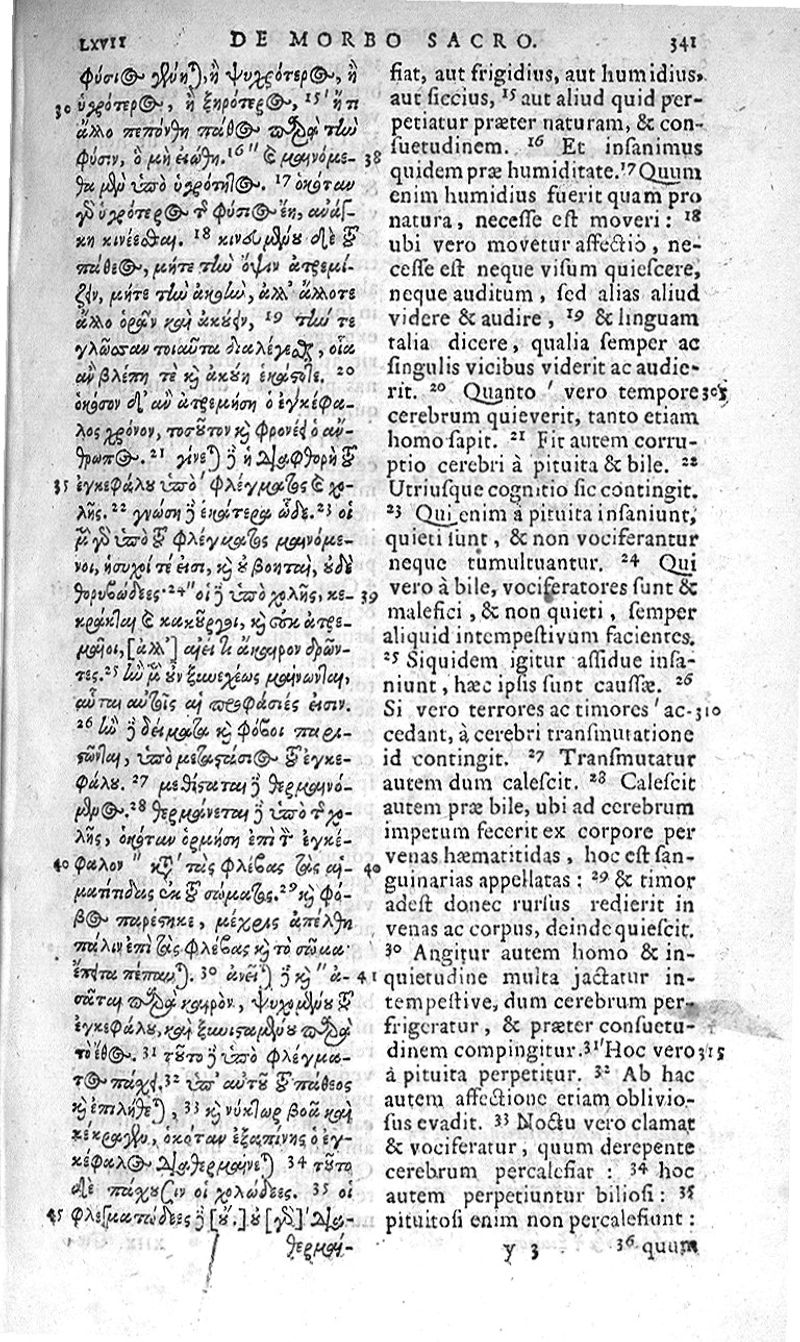 LXVII DE MORBO SACRO. 341
φύσιος γένηται, ἢ ψυχρότερος, ἢ
30 ὑγρότερος, ἢ ξηρότερος, 15 ἤ τι
ἄλλο πεπόνθῃ πάθος παρὰ τὴν
φύσιν, ὃ μὴ ἐώθη. 16 " καὶ μαινόμε- 38
θα μὲν ὑπὸ ὑγρότητος. 17 ὁκόταν
γὰρ ὑγρότερος τῆς φύσιος ἔῃ, ἀνάγ-
κη κινέεσθαι. 18 κινουμένου δὲ τοῦ
πάθεος, μήτε τὴν ὄψιν ἀτρεμί-
ζειν, μήτε τὴν ἀκοὴν, ἀλλ' ἄλλοτε
ἄλλο ὁρᾷν καὶ ἀκούειν, 19 τήν τε
γλῶσσαν τοιαῦτα διαλέγεσθαι, οἷα
ἂν βλέπῃ τὲ καὶ ἀκούῃ ἑκάστοτε. 20
ὁκόσον δ' ἂν ἀτρεμήσῃ ὁ ἐγκέφα-
λος χρόνον, τοσοῦτον καὶ φρονέει ὁ ἄν-
θρωπος. 21 γίνεται δὲ ἡ διαφθορὴ τοῦ
35 ἐγκεφάλου ὑπὸ ' φλέγματος καὶ χο-
λῆς. 22 γνώσῃ δὲ ἑκάτερα ὧδε. 23 οἱ
μὲν γὰρ ὑπὸ τοῦ φλέγματος μαινόμε-
νοι, ἥσυχοί τέ εἰσι, καὶ οὐ βοηταὶ, οὐδὲ
θορυβώδεες· 24 " οἱ δὲ ὑπὸ χολῆς, κε- 39
κράκται καὶ κακοῦργοι, καὶ οὐκ ἀτρε-
μαῖοι, [ἀλλ'] αἰεί τι ἄκαιρον δρῶν-
τες. 25 ἢν μὲν οὖν ξυνεχέως μαίνωνται,
αὗται αὐτοῖς αἱ προφάσιές εἰσιν.
26 ἢν δὲ δείματα καὶ φόβοι παρι-
στῶνται, ὑπὸ μεταστάσιος τοῦ ἐγκε-
φάλου. 27 μεθίσταται δὲ θερμαινό-
μενος. 28 θερμαίνεται δὲ ὑπὸ τῆς χο-
λῆς, ὁκόταν ὁρμήσῃ ἐπὶ τὸν ἐγκέ-
40 φαλον " κατὰ ' τὰς φλέβας τὰς αἱ- 40
ματίτιδας ἐκ τοῦ σώματος. 29 καὶ φό-
βος παρέστηκε, μέχρις ἀπέλθῃ
πάλιν ἐπὶ τὰς φλέβας καὶ τὸ σῶμα·
ἔπειτα πέπαυται. 30 ἀνειᾶται δὲ καὶ " ἀ- 41
σᾶται παρὰ καιρὸν, ψυχομένου τοῦ
ἐγκεφάλου, καὶ ξυνισταμένου παρὰ
τὸ ἔθος. 31 τοῦτο δὲ ὑπὸ φλέγμα-
τος πάσχει. 32 ὑπ' αὐτοῦ τοῦ πάθεος
καὶ ἐπιλήθεται, 33 καὶ νύκτωρ βοᾷ καὶ
κέκραγεν, ὁκόταν ἐξαπίνης ὁ ἐγ-
κέφαλος διαθερμαίνεται 34 τοῦτο
δὲ πάσχουσιν οἱ χολώδεες. 35 οἱ
45 φλεγματώδεες δὲ [οὔ.] οὐ [γὰρ] ' δια-
θερμαί-
fiat, aut frigidius, aut humidius,
aut siccius, 15 aut aliud quid per-
petiatur præter naturam, & con-
suetudinem. 16 Et insanimus
quidem præ humiditate. 17 Quum
enim humidius fuerit quam pro
natura, necesse est moveri: 18
ubi vero movetur affectio, ne-
cesse est neque visum quiescere,
neque auditum, sed alias aliud
videre & audire, 19 & linguam
talia dicere, qualia semper ac
singulis vicibus viderit ac audie-
rit. 20 Quanto ' vero tempore 305
cerebrum quieverit, tanto etiam
homo sapit. 21 Fit autem corru-
ptio cerebri à pituita & bile. 22
Utriusque cognitio sic contingit.
23 Qui enim à pituita insaniunt,
quieti sunt, & non vociferantur
neque tumultuantur. 24 Qui
vero à bile, vociferatores sunt &
malefici, & non quieti, semper
aliquid intempestivum facientes.
25 Siquidem igitur assidue insa-
niunt, hæc ipsis sunt caussæ. 26
Si vero terrores ac timores ' ac- 310
cedant, à cerebri transmutatione
id contingit. 27 Transmutatur
autem dum calescit. 28 Calescit
autem præ bile, ubi ad cerebrum
impetum fecerit ex corpore per
venas hæmatitidas, hoc est san-
guinarias appellatas: 29 & timor
adest donec rursus redierit in
venas ac corpus, deinde quiescit.
30 Angitur autem homo & in-
quietudine multa jactatur in-
tempestive, dum cerebrum per-
frigeratur, & præter consuetu-
dinem compingitur. 31 ' Hoc vero 315
à pituita perpetitur. 32 Ab hac
autem affectione etiam oblivio-
sus evadit. 33 Noctu vero clamat
& vociferatur, quum derepente
cerebrum percalefiat: 34 hoc
autem perpetiuntur biliosi: 35
pituitosi enim non percalefiunt:
Y 3 36 quum